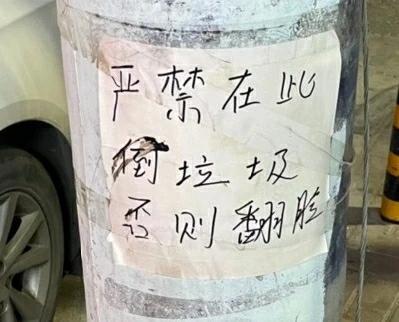 严禁在此
倒垃圾
否则翻脸